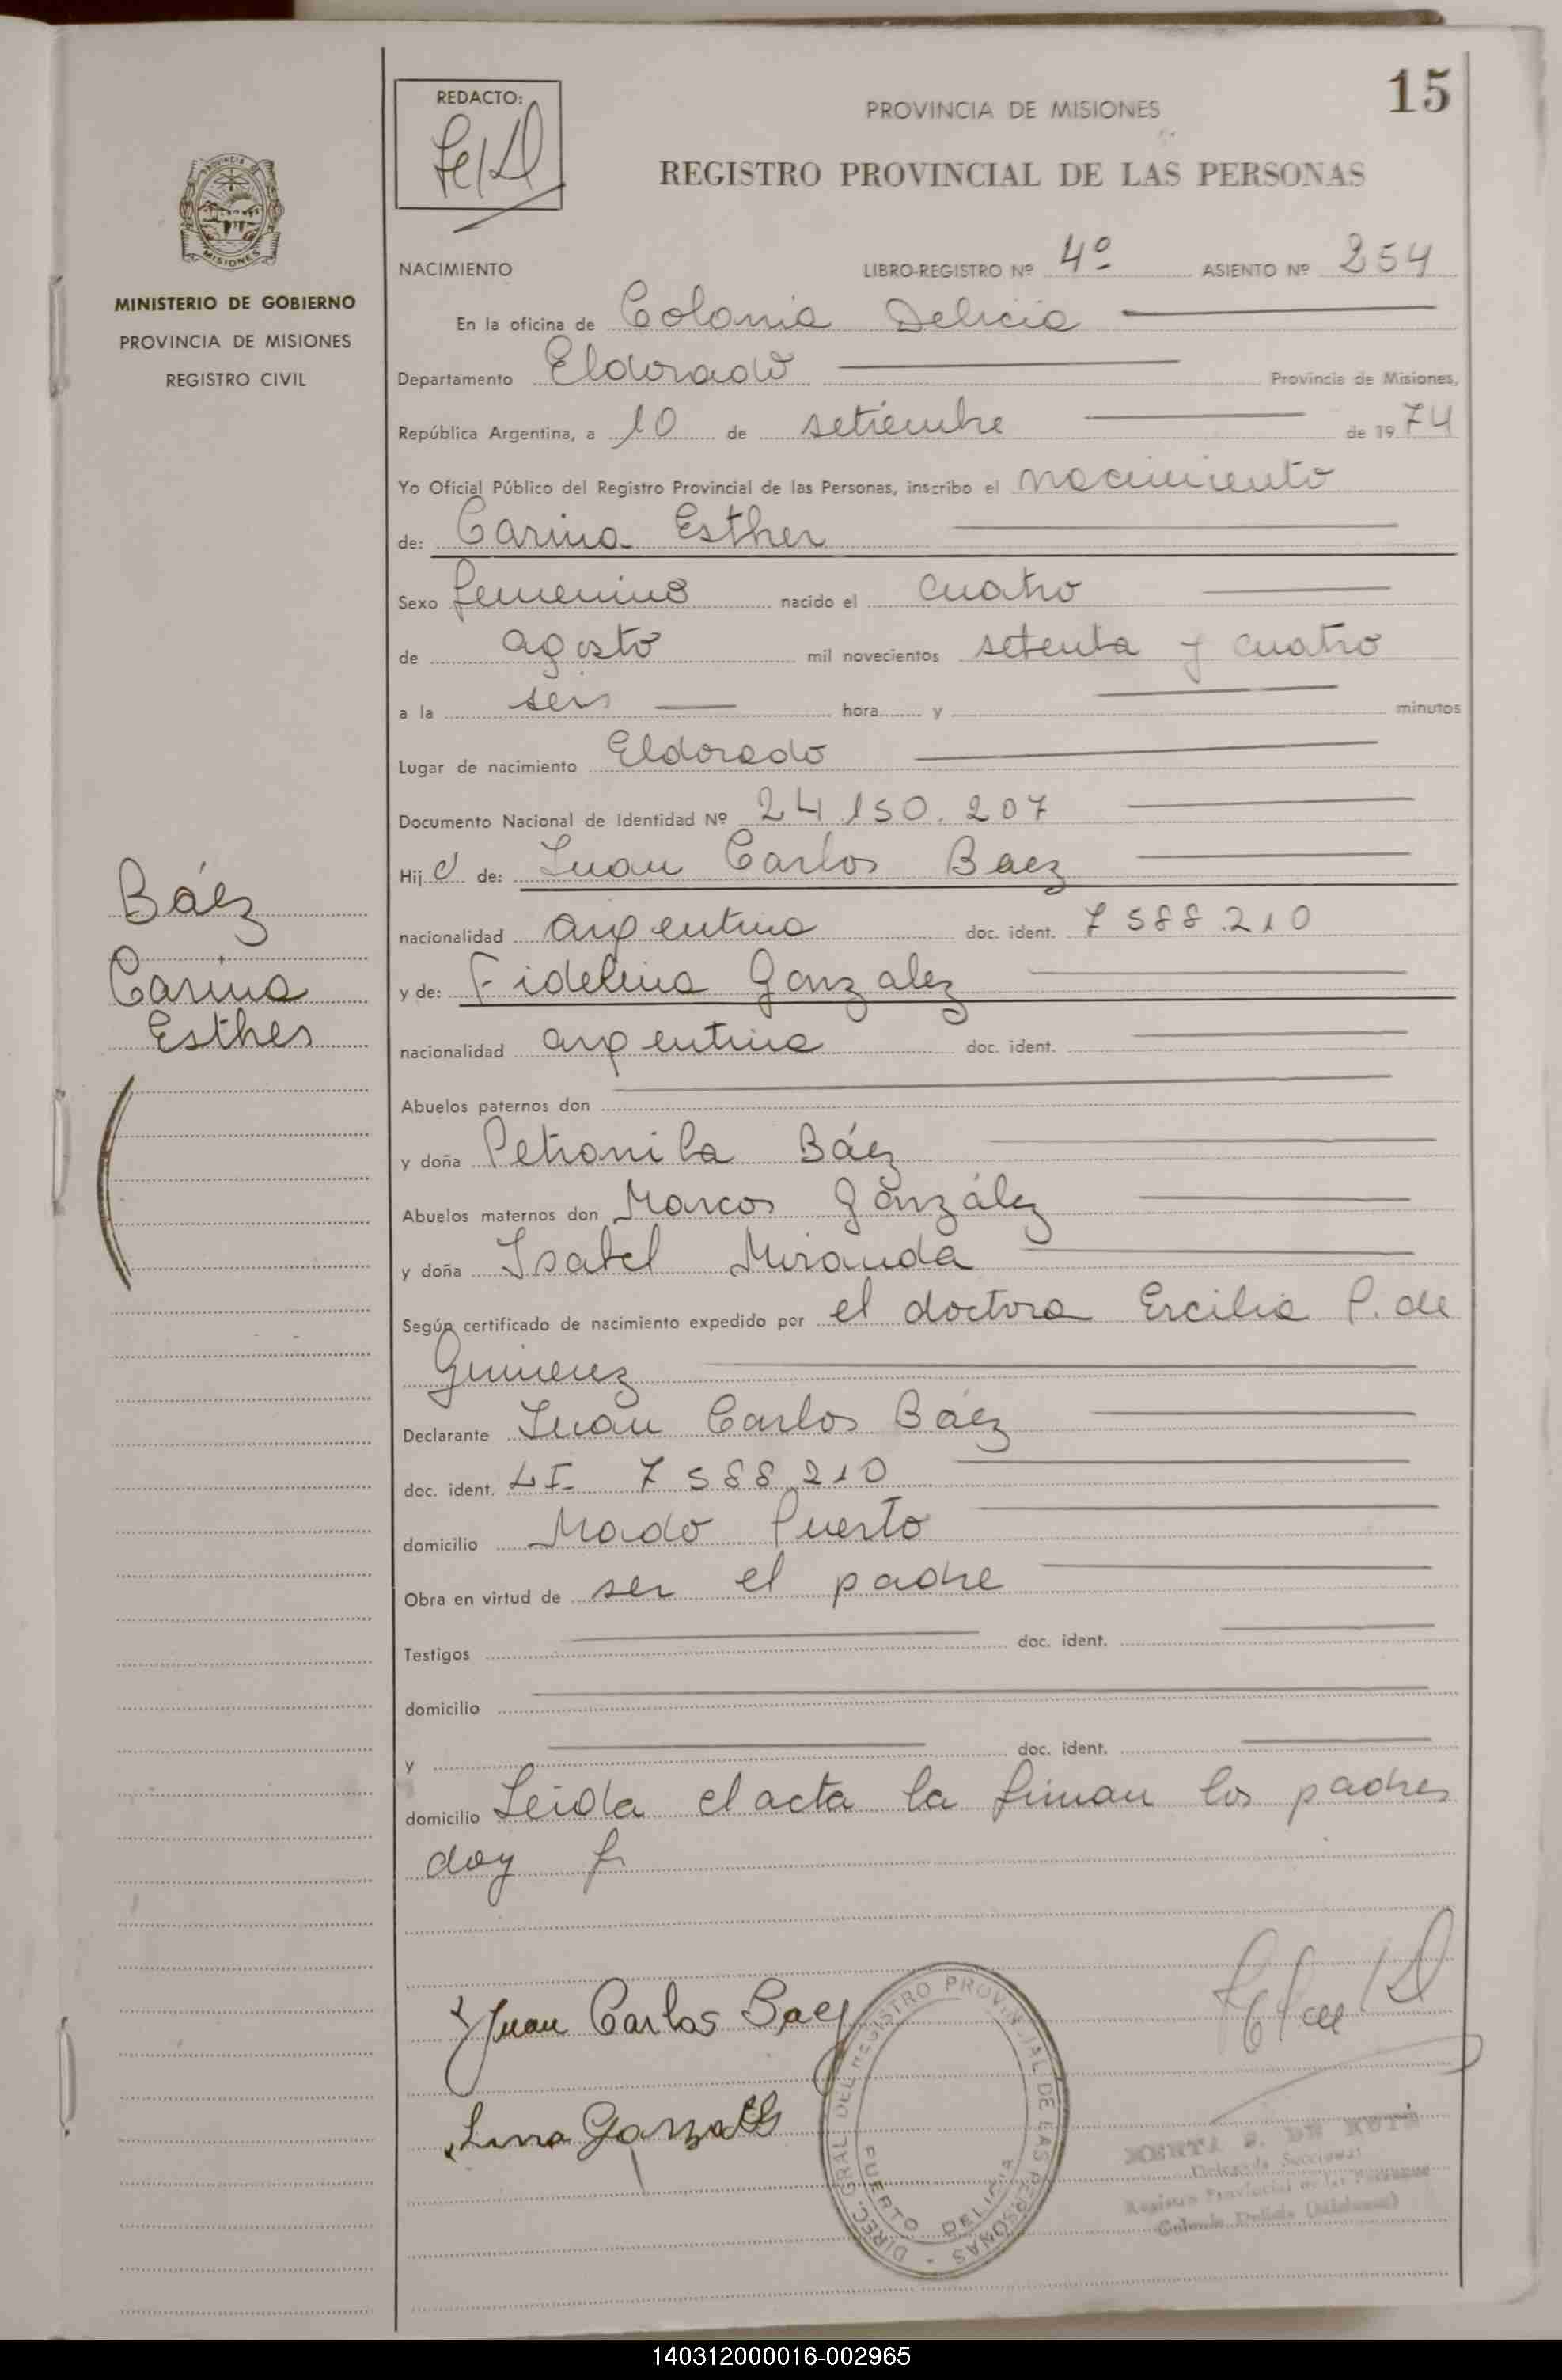 15
REDACTO:
PROVINCIA DE MISIONES
REGISTRO PROVINCIAL DE LAS PERSONAS
PROVINCIA DE
MISIONES
MINISTERIO DE GOBIERNO
PROVINCIA DE MISIONES
REGISTRO CIVIL
NACIMIENTO LIBRO-REGISTRO Nº 4º ASIENTO Nº 254
En la oficina de Colonia Delicia
Departamento Eldorado Provincia de Misiones,
República Argentina, a 10 de setiembre de 1974
Yo Oficial Público del Registro Provincial de las Personas, inscribo el nacimiento
de: Carina Esther
Sexo femenino nacido el cuatro
de agosto mil novecientos setenta y cuatro
a la seis hora y minutos
Lugar de nacimiento Eldorado
Documento Nacional de Identidad Nº 24.150.207
Hij a de: Juan Carlos Baez
nacionalidad argentina doc. ident. 7588.210
y de: Fidelina Gonzalez
nacionalidad argentina doc. ident.
Báez
Carina
Esther
Abuelos paternos don
y doña Petronila Báez
Abuelos maternos don Marcos González
y doña Isabel Miranda
Según certificado de nacimiento expedido por el doctora Ercilia P. de
Gimenez
Declarante Juan Carlos Báez
doc. ident. LI 7588210
domicilio Mado Puerto
Obra en virtud de ser el padre
Testigos doc. ident.
domicilio
y doc. ident.
domicilio Leida el acta la firman los padres
doy fe
Juan Carlos Baez
DIREC. GRAL. DEL REGISTRO PROVINCIAL DE LAS PERSONAS
PUERTO DELICIA
Registro Provincial de las Personas
Colonia Delicia (Misiones)
140312000016-002965